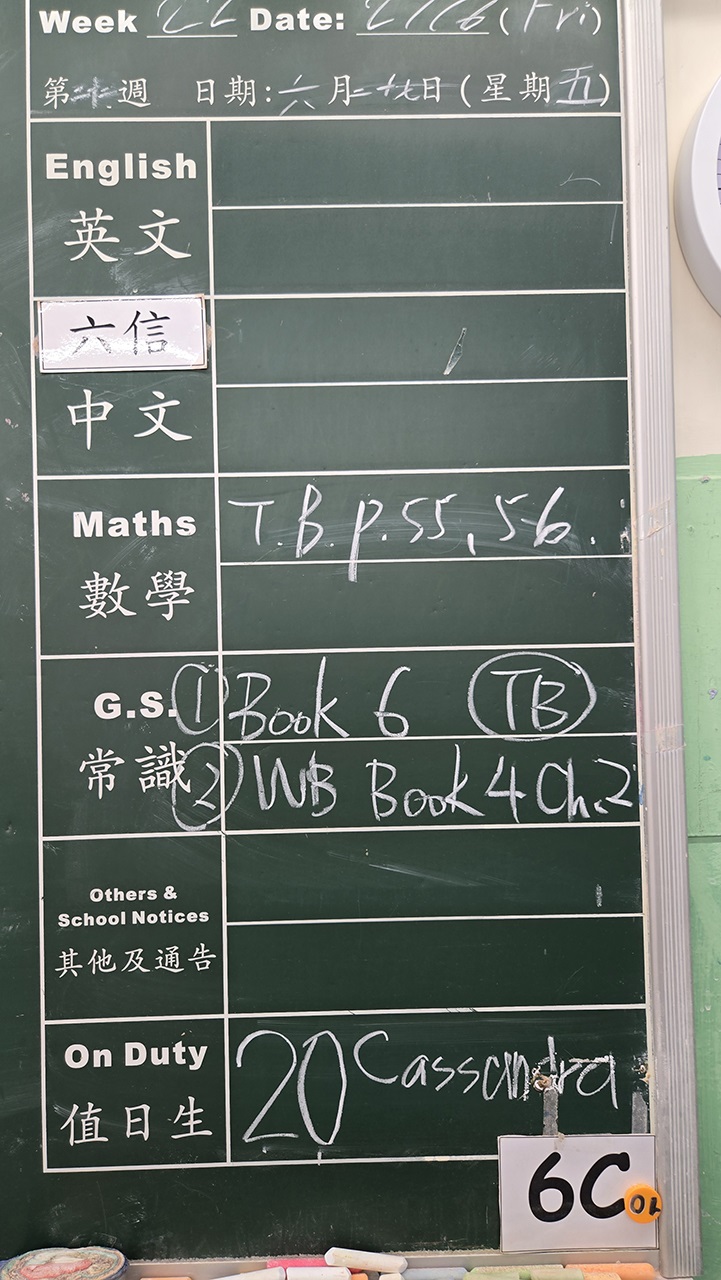 Week 22 Date: 27/6 (Fri)
第二十二週 日期:六月二十七日(星期五)
English
英文
六信
中文
Maths T.B. p.55, 56.
數學
G.S. ① Book 6 TB
常識 ② WB Book 4 Ch.2
Others &
School Notices
其他及通告
On Duty 20 Cassandra
值日生
6C